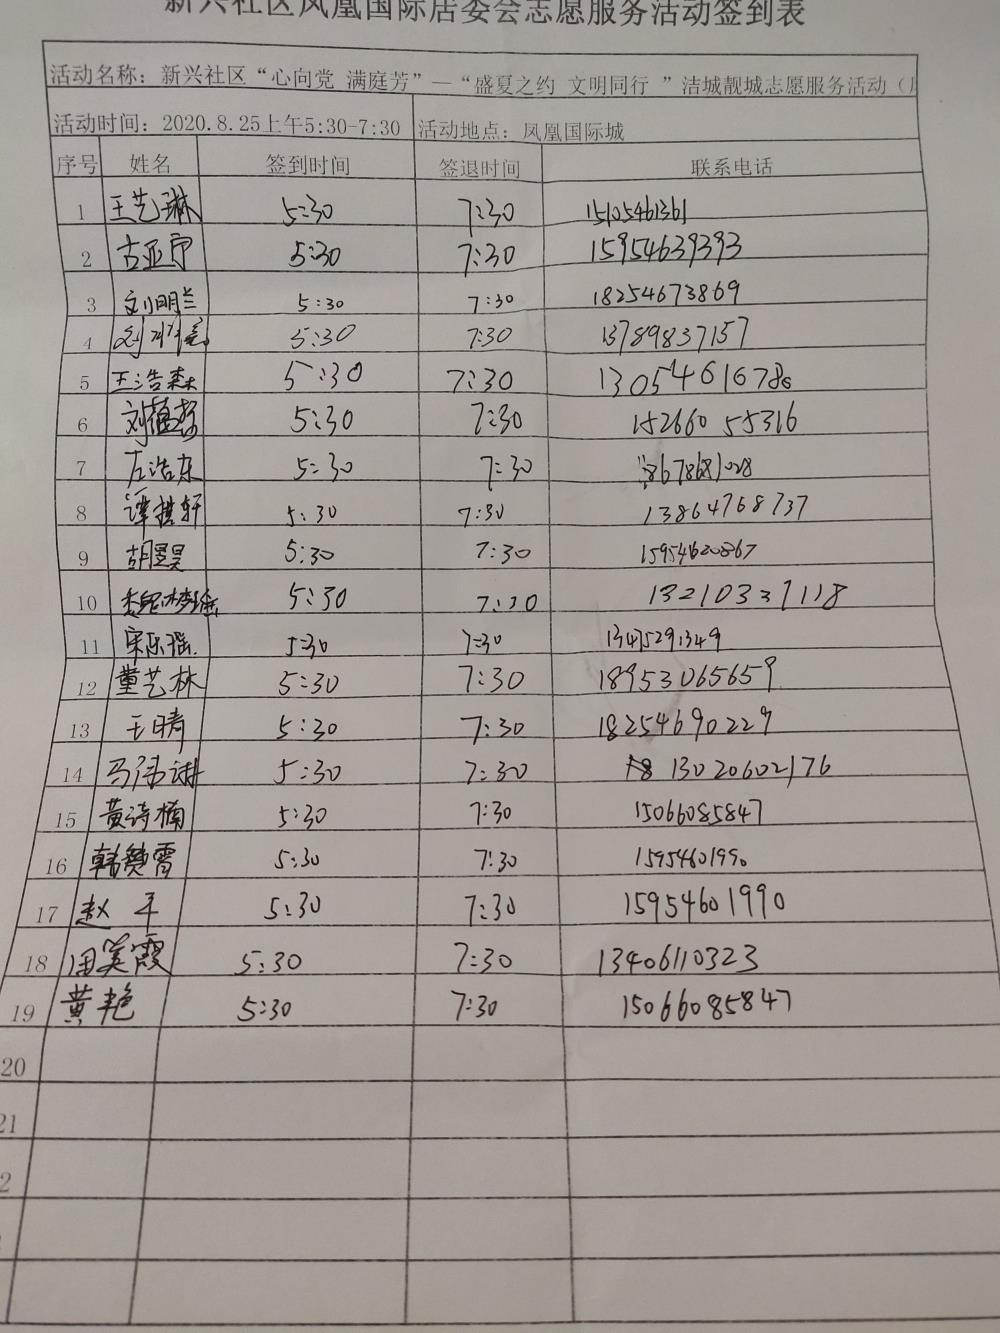 新兴社区凤凰国际居委会志愿服务活动签到表
活动名称：新兴社区“心向党 满庭芳”—“盛夏之约 文明同行 ”洁城靓城志愿服务活动（
活动时间：2020.8.25上午5:30-7:30 活动地点：凤凰国际城
序号 姓名 签到时间 签退时间 联系电话
1 王艺琳 5:30 7:30 15105461361
2 古亚宁 5:30 7:30 15954639393
3 刘明兰 5:30 7:30 18254673869
4 刘 5:30 7:30 13789837157
5 王浩森 5:30 7:30 13054616786
6 刘蕴哲 5:30 7:30 15266055316
7 左浩东 5:30 7:30 18678681028
8 谭棋轩 5:30 7:30 13864768737
9 胡昱昊 5:30 7:30 15954620867
10 5:30 7:30
11 宋乐瑶 5:30 7:30 13475291349
12 董艺林 5:30 7:30 18953065659
13 王晴 5:30 7:30 18254690229
14 马伟琳 5:30 7:30 13020602176
15 黄诗楠 5:30 7:30 15066085847
16 韩赞霄 5:30 7:30 15954601990
17 赵平 5:30 7:30 15954601990
18 周美霞 5:30 7:30 13406110323
19 黄艳 5:30 7:30 15066085847
20
21
2